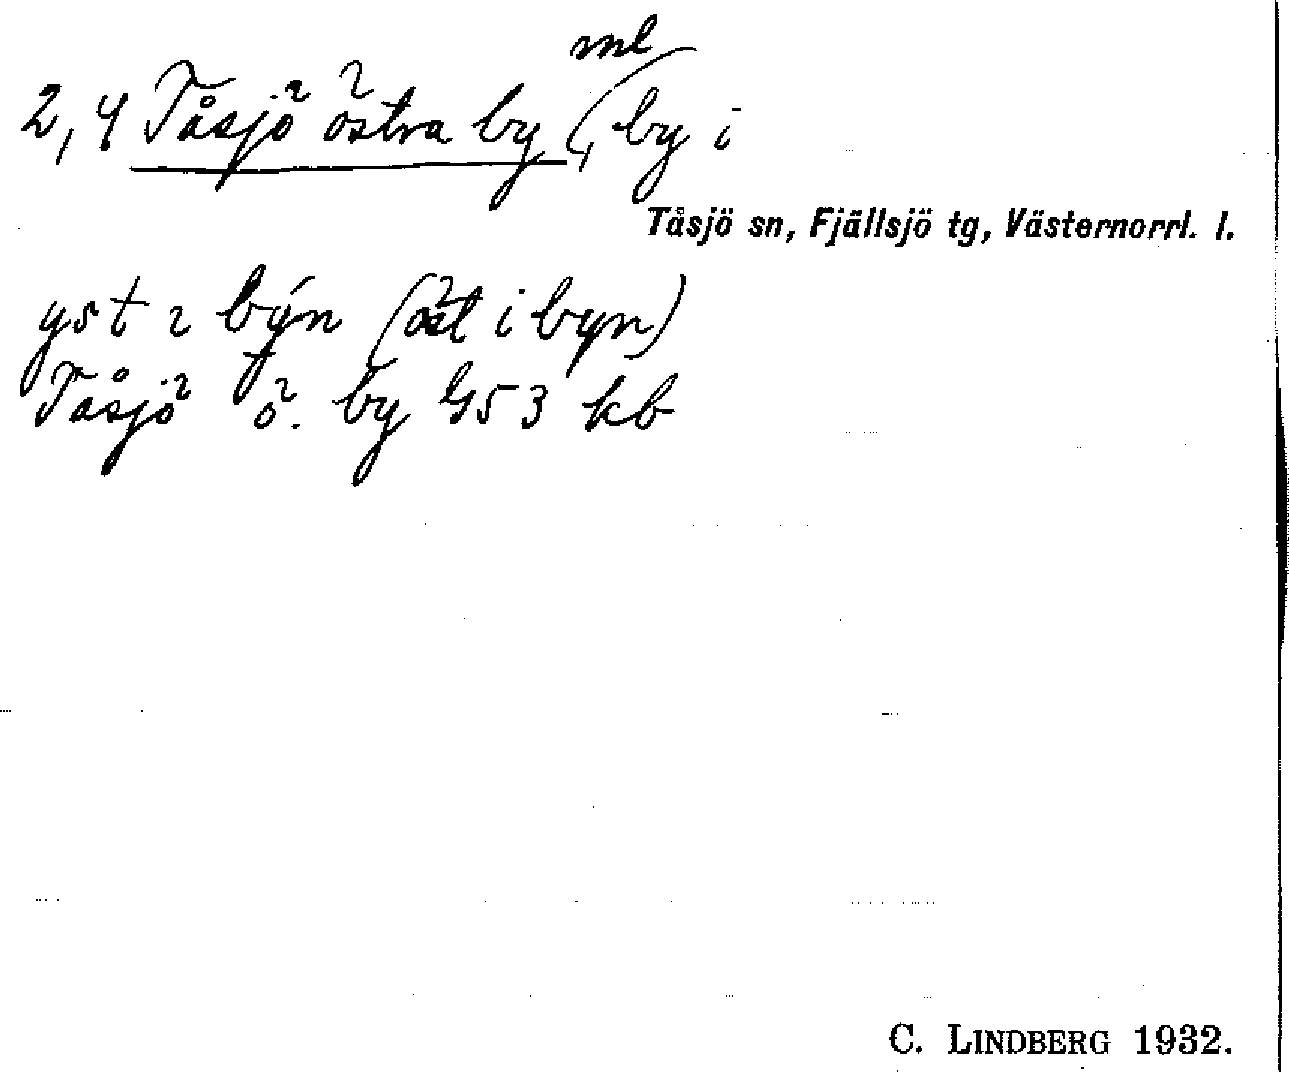 2,4 Tåsjö östra by ml, by i
Tåsjö sn, Fjällsjö tg, Västernorrl. l.
yst ı býn (öst i byn)
Tåsjö ö. by G53 kb
C. LINDBERG 1932.